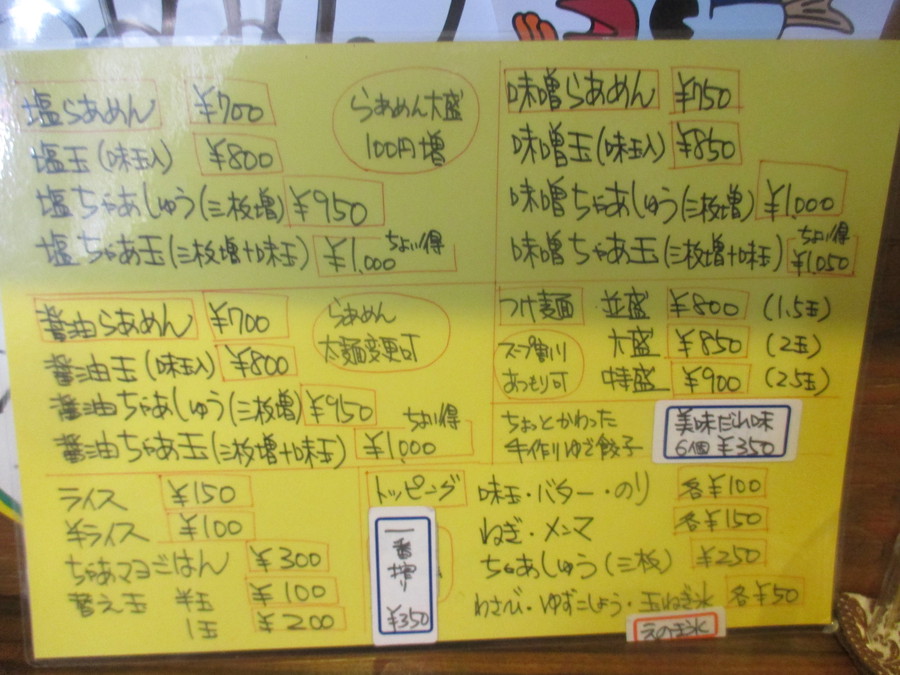 塩らあめん ¥700
塩玉(味玉入) ¥800
塩ちゃあしゅう(三枚増) ¥950
塩ちゃあ玉(三枚増+味玉) ¥1,000 ちょい得
らあめん大盛
100円増
味噌らあめん ¥750
味噌玉(味玉入) ¥850
味噌ちゃあしゅう(三枚増) ¥1,000
味噌ちゃあ玉(三枚増+味玉) ちょい得 ¥1,050
醤油らあめん ¥700
醤油玉(味玉入) ¥800
醤油ちゃあしゅう(三枚増) ¥950
醤油ちゃあ玉(三枚増+味玉) ¥1,000 ちょい得
らあめん
太麺変更可
つけ麺 並盛 ¥800 (1.5玉)
大盛 ¥850 (2玉)
特盛 ¥900 (2.5玉)
スープ割り
あつもり可
ちょっとかわった
手作りゆで餃子
美味だれ味
6個 ¥350
ライス ¥150
半ライス ¥100
ちゃあマヨごはん ¥300
替え玉 半玉 ¥100
1玉 ¥200
一番搾り
¥350
トッピング 味玉・バター・のり 各¥100
ねぎ・メンマ 各¥150
ちゃあしゅう(三枚) ¥250
わさび・ゆずこしょう・玉ねぎ氷 各¥50